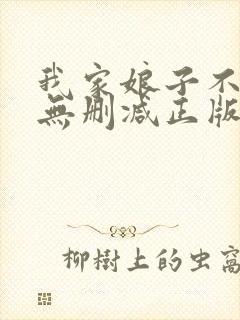 我家娘子不
無删减正版
柳樹上的虫窩